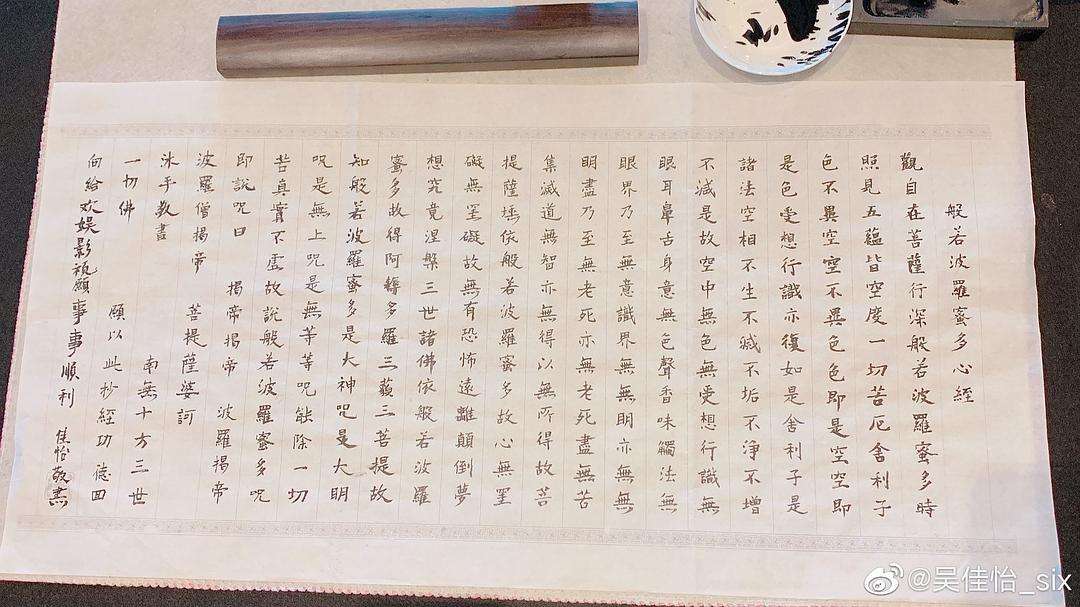 般若波羅蜜多心經
觀自在菩薩行深般若波羅蜜多時
照見五蘊皆空度一切苦厄舍利子
色不異空空不異色色即是空空即
是色受想行識亦復如是舍利子是
諸法空相不生不滅不垢不淨不增
不減是故空中無色無受想行識無
眼耳鼻舌身意無色聲香味觸法無
眼界乃至無意識界無無明亦無無
明盡乃至無老死亦無老死盡無苦
集滅道無智亦無得以無所得故菩
提薩埵依般若波羅蜜多故心無罣
礙無罣礙故無有恐怖遠離顛倒夢
想究竟涅槃三世諸佛依般若波羅
蜜多故得阿耨多羅三藐三菩提故
知般若波羅蜜多是大神咒是大明
咒是無上咒是無等等咒能除一切
苦真實不虛故說般若波羅蜜多咒
即說咒曰 揭帝揭帝 波羅揭帝
波羅僧揭帝 菩提薩婆訶
沐手敬書 南無十方三世
一切佛 願以此抄經功德回
向給欢娱影視願事事順利 佳怡敬書
@吴佳怡_six